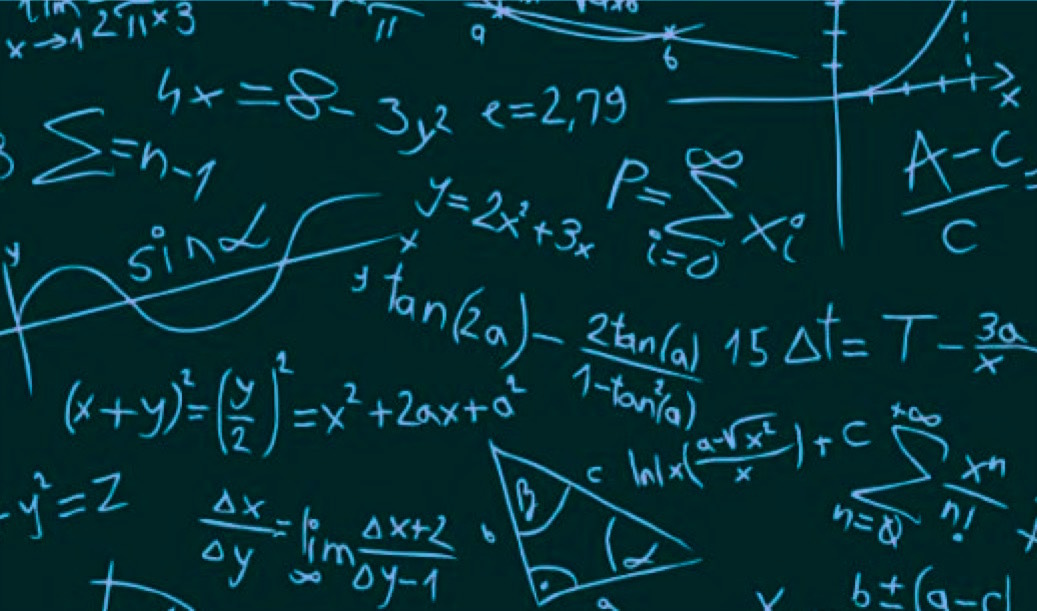 lim x→1 2π×3
π
a
b
4x = 8 - 3y² e = 2,79
x
∑ = n-1
P = ∑ i=0 ∞ xi
A - C / C =
y = 2x² + 3x
sin α
y
x
y
tan(2a) - 2tan(a) / 1-tan²(a)
15 Δt = T - 3a / x
(x+y)² = (y/2)² = x² + 2ax + a²
ln|x( a-√x² / x )| + C
∑ n=0 +∞ xⁿ / n!
- y² = Z
Δx / Δy = lim ∞ Δx+2 / Δy-1
β
c
b
α
a
b ± (a-c)